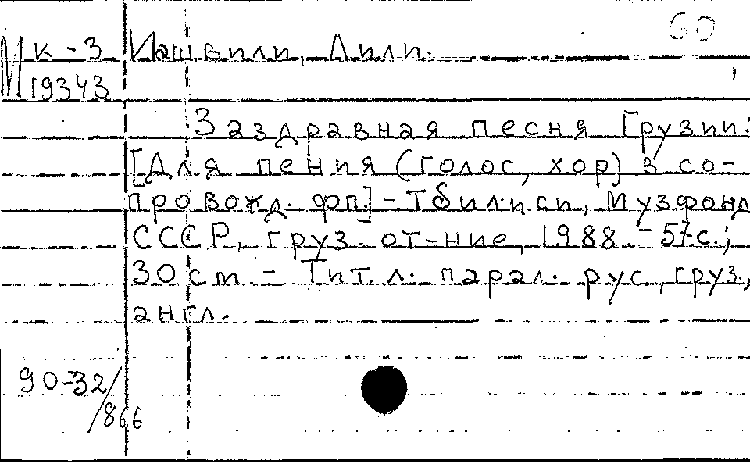 60
М к-3 Иашвили, Лили.
19343
Заздравная песня Грузии:
[Для пения (голос, хор) в со-
провожд. фп.] - Тбилиси, Музфонд
СССР, Груз. от-ние, 1988 - 57с.;
30 cm - Тит. л. парал. рус., груз.,
англ.
90-32/
866